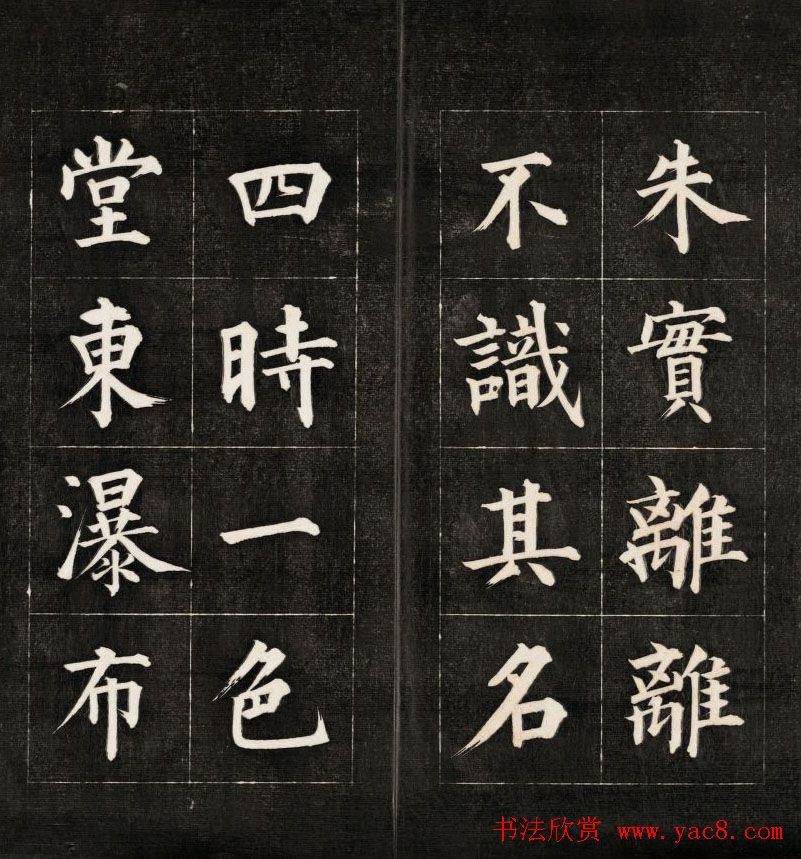 朱實離離
不識其名
四時一色
堂東瀑布
书法欣赏 www.yac8.com